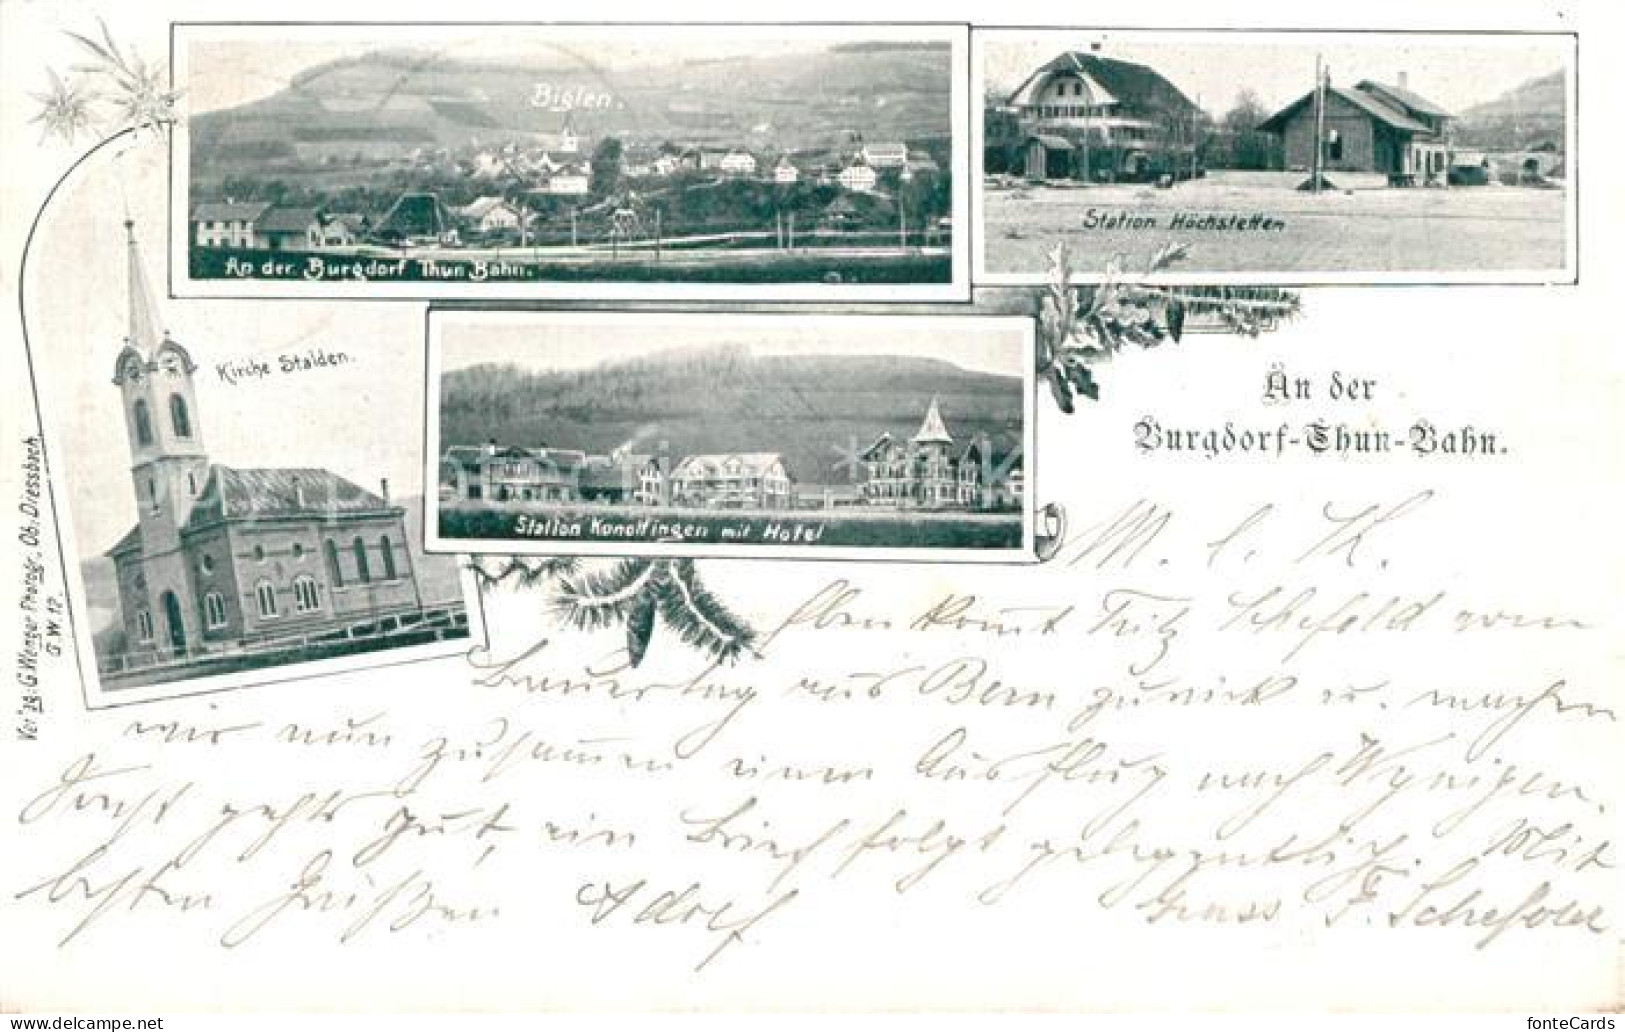 Biglen.
An der Burgdorf Thun Bahn.
Station Höchstetten
Kirche Stalden.
Station Konolfingen mit Hotel
An der
Burgdorf-Thun-Bahn.
Verlag: G. Wenger Photogr. Ob: Diessbach
G. W 17.
M. l. K.
Eben kommt Fritz Schefold vom
Bauerntag aus Bern zurück u. machen
wir nun zusammen einen Ausflug nach Wynigen.
Sonst geht's gut, ein Brief folgt gelegentlich. Mit
besten Grüßen Adolf Gruss F. Schefold
fonteCards
Delcampe.net / Bildpostkarten